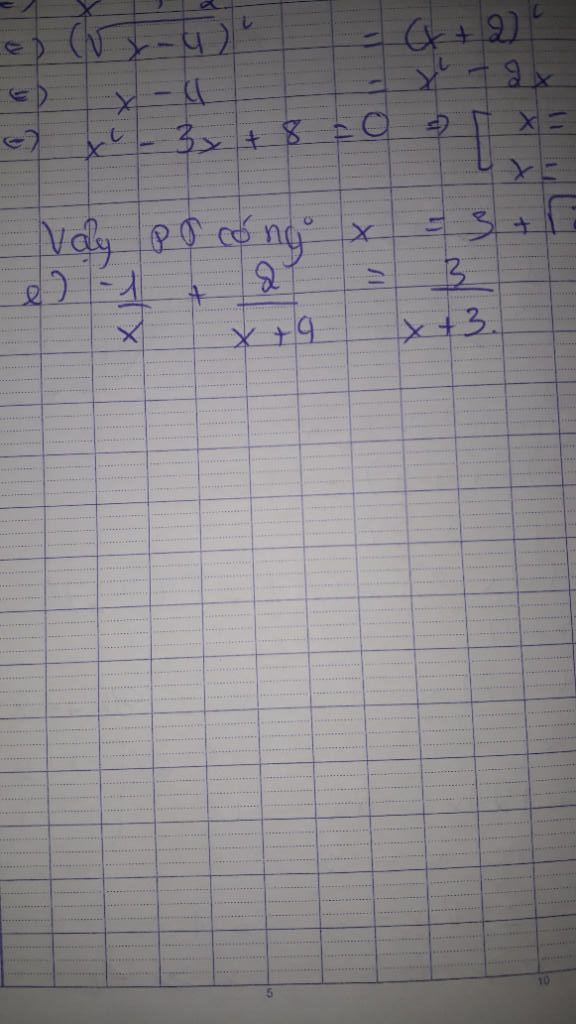 ⇔) (√x - 4)² = (x + 2)²
⇔) x - 4 = x² - 2x
⇔) x² - 3x + 8 = 0 ⇒ [ x =
x =
Vậy PT có ng° x = 3 + √
e) -1/x + 2/(x + 9) = 3/(x + 3).
5 10